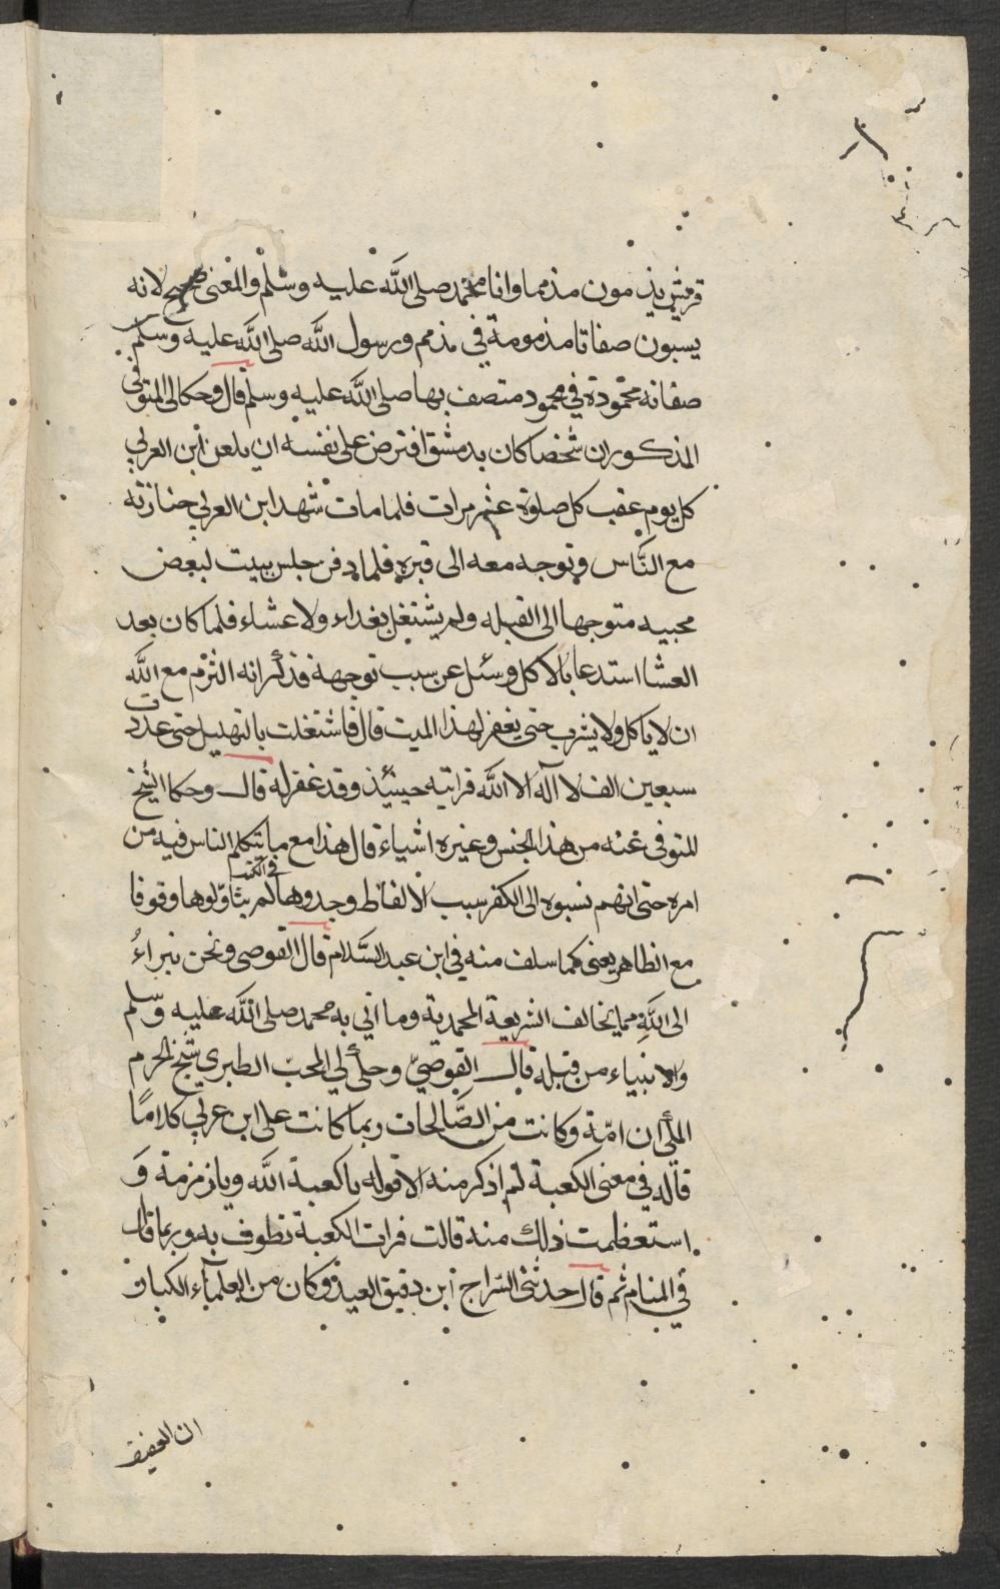 قريش يذمون مذمما وانا محمد صلى الله عليه وسلم والمعنى صحيح لانه
يسبون صفاتا مذمومة في مذمم ورسول الله صلى الله عليه وسلم
صفاته محمودة في محمود متصف بها صلى الله عليه وسلم قال وحكالى المتوفى
المذكوران شخصا كان بدمشق افترض على نفسه ان يلعن ابن العربي
كل يوم عقب كل صلوة عشر مرات فلما مات شهد ابن العربي جنازته
مع الناس وتوجه معه الى قبره فلما دفن جلس ببيت لبعض
محبيه متوجها الى القبله ولم يشتغل بغداء ولا عشاء فلما كان بعد
العشا استدعا بالاكل وسئل عن سبب توجهه فذكر انه التزم مع الله
ان لا ياكل ولا يشرب حتى يغفر لهذا الميت قال فاشتغلت بالتهليل حتى عددت
سبعين الف لا اله الا الله فراتيه حينئذ وقد غفر له قال وحكا الشيخ
المتوفى عنه من هذا الجنس وغيره اشياء قال هذا مع ما يتكلم الناس فيه من
امره حتى انهم نسبوه الى الكفر سبب الالفاظ وجدوها في الكتب لم يتاولوها وقوفا
مع الظاهر يعنى كما سلف منه في ابن عبد السلام قال القوصي ونحن نبراء
الى الله مما يخالف الشريعة المحمدية وما اتي به محمد صلى الله عليه وسلم
والانبياء من قبله قال القوصي وحكى لي المحب الطبري شيخ الحرم
المكي ان امه وكانت من الصالحات ربما كانت على ابن عربي كلاما
قاله في معنى الكعبة لم اذكر منه الا قوله يا كعبة الله ويا زمزمة و
استعظمت ذلك منه قالت فرات الكعبة تطوف به وربما قال
في المنام ثم قال حدثني السراج ابن دقيق العيد وكان من العلماء الكبار